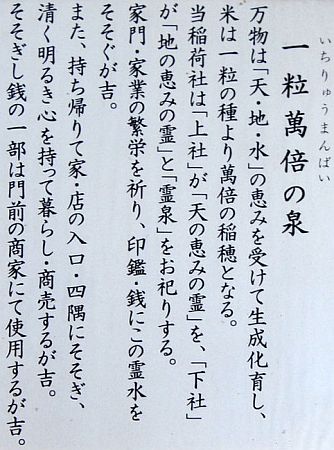 いちりゅうまんばい
一粒萬倍の泉
万物は「天・地・水」の恵みを受けて生成化育し、
米は一粒の種より萬倍の稲穂となる。
当稲荷社は「上社」が「天の恵みの霊」を、「下社」
が「地の恵みの霊」と「霊泉」をお祀りする。
家門・家業の繁栄を祈り、印鑑・銭にこの霊水を
そそぐが吉。
また、持ち帰りて家・店の入口・四隅にそそぎ、
清く明るき心を持って暮らし・商売するが吉。
そそぎし銭の一部は門前の商家にて使用するが吉。